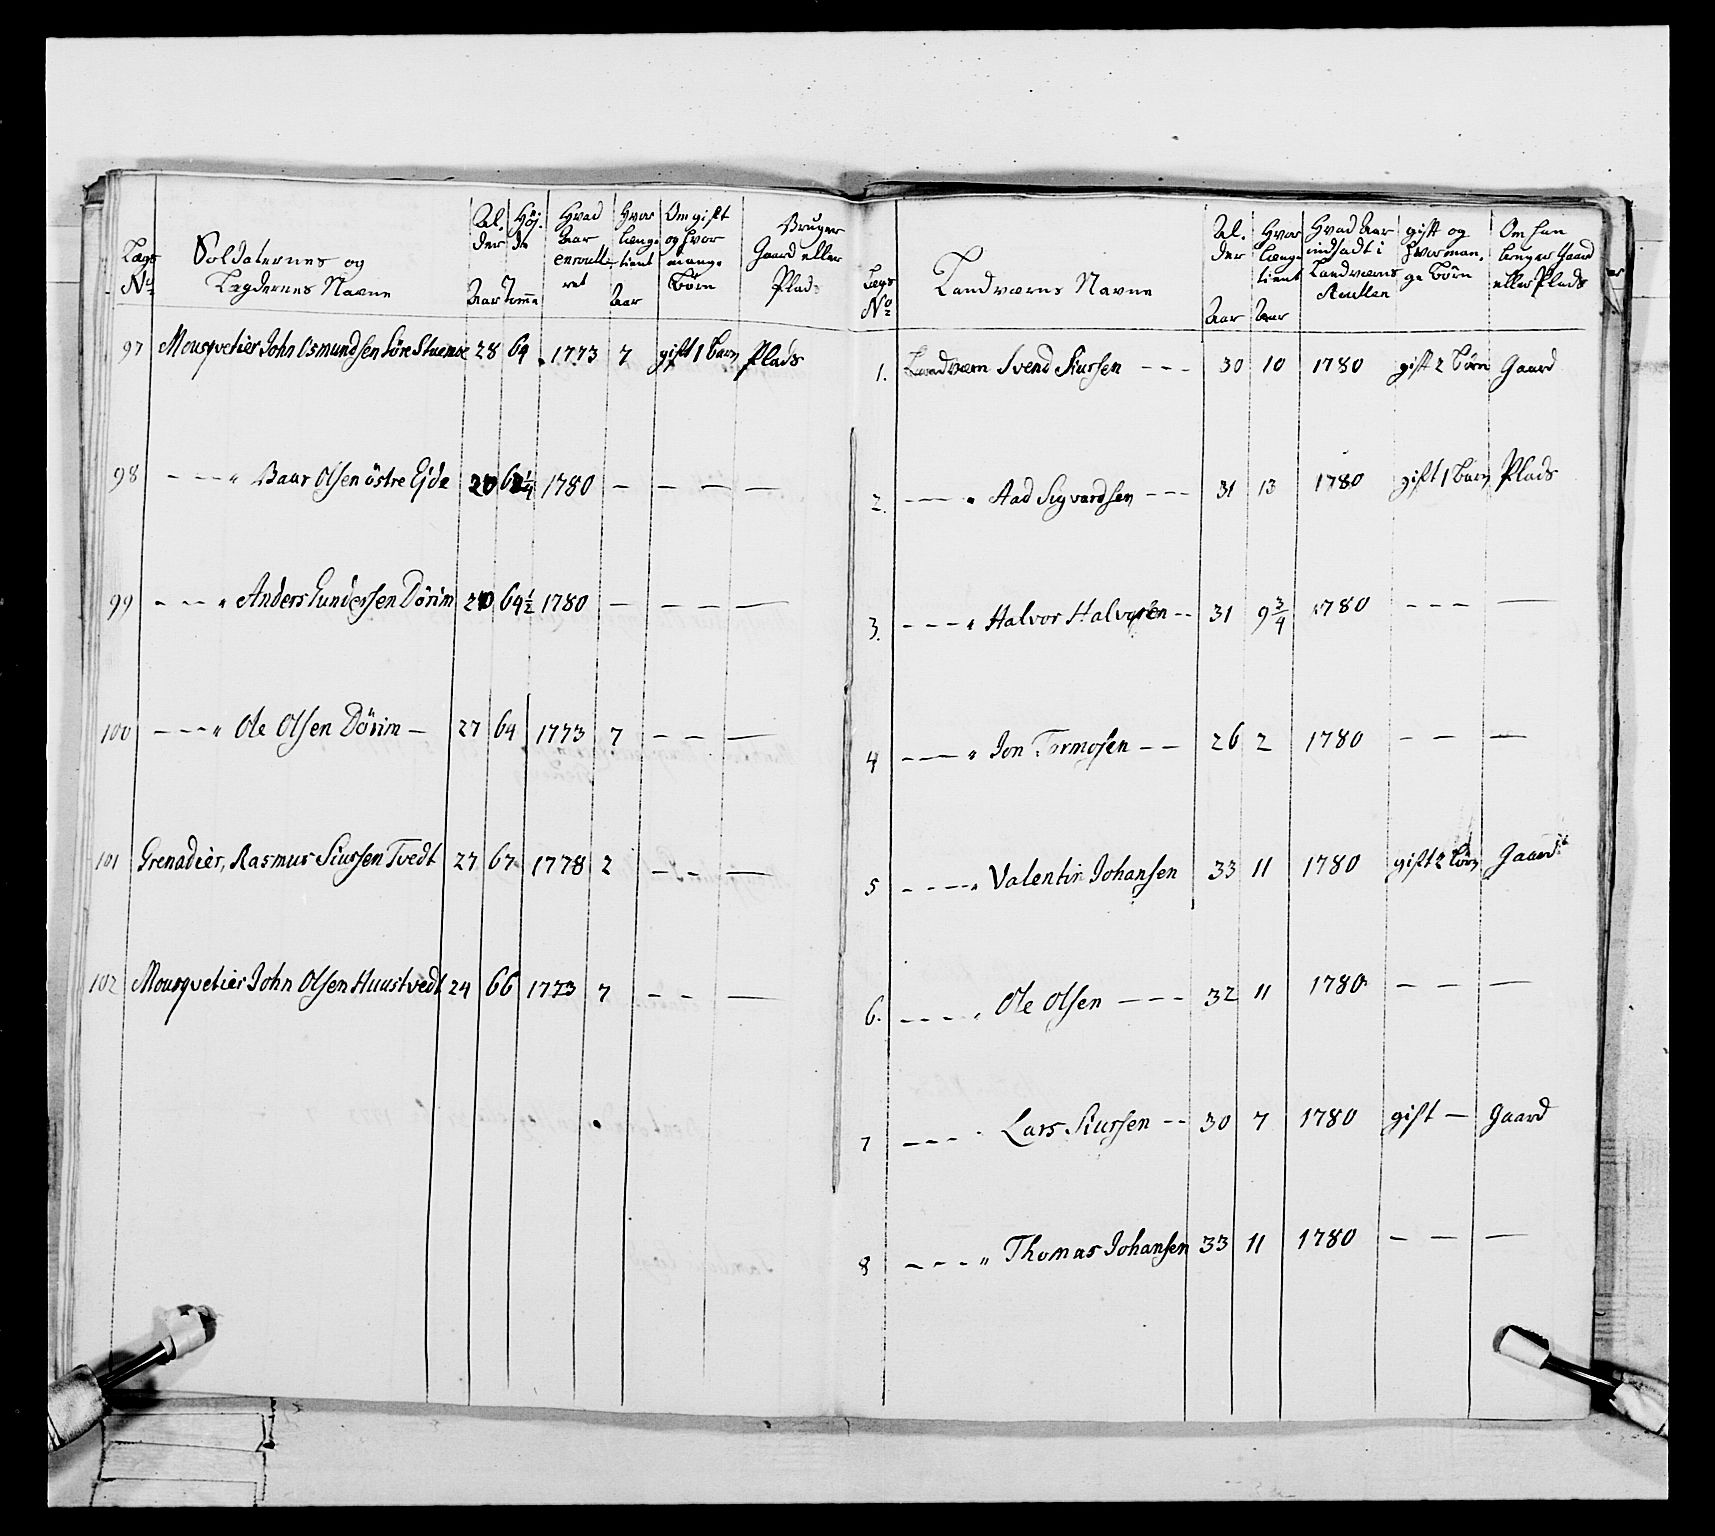 Lægs No
Soldaternes og Lægdernes Navne
Alder Aar
Højde Tomme
Hvad Aar enroulleret
Hvor længe tient Aar
Om gift og hvor mange Børn
Bruger Gaard eller Plads
97 Mousqvetier John Osmundsen Söre 28 64 1773 7 gift 1 Barn Plads
98 - - - " Baar Olsen östre Ejde 20 1780 - - - -
99 - - - " Anders Gundersen Dörim 20 64½ 1780 - - - -
100 - - - " Ole Olsen Dörim - 27 64 1773 7 - - -
101 Grenadier, Rasmus Siursen Tvedt 27 67 1778 2 - - -
102 Mousqvetier John Olsen Huustvedt 24 66 1773 7 - - -
Lægs No
Landværns Navne
Alder Aar
Hvor længe tient Aar
Hvad Aar indsadt i Landværns Rullen
gift og hvor mange Børn
Om han bruger Gaard eller Plads
1. Landværn Svend Siursen - - - 30 10 1780 gift 2 Börn Gaard
2. - - - " Aad Sigvardsen - - - 31 13 1780 gift 1 Barn Plads
3. - - - " Halvor Halvorsen - - 31 9¾ 1780 - - - -
4 - - - " Jon Tormosen - - 26 2 1780 - - -
5 - - - " Valentin Johansen 33 11 1780 gift 2 Börn Gaard
6. - - - " Ole Olsen - - - 32 11 1780 - - -
7 - - - " Lars Siursen - - 30 7 1780 gift - Gaard
8 - - - " Thomas Johansen 33 11 1780 - - -